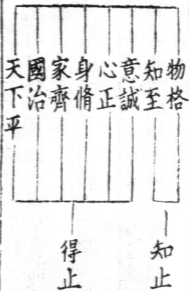 物格
知至
意誠
心正
身脩
家齊
國治
天下平
知止
得止